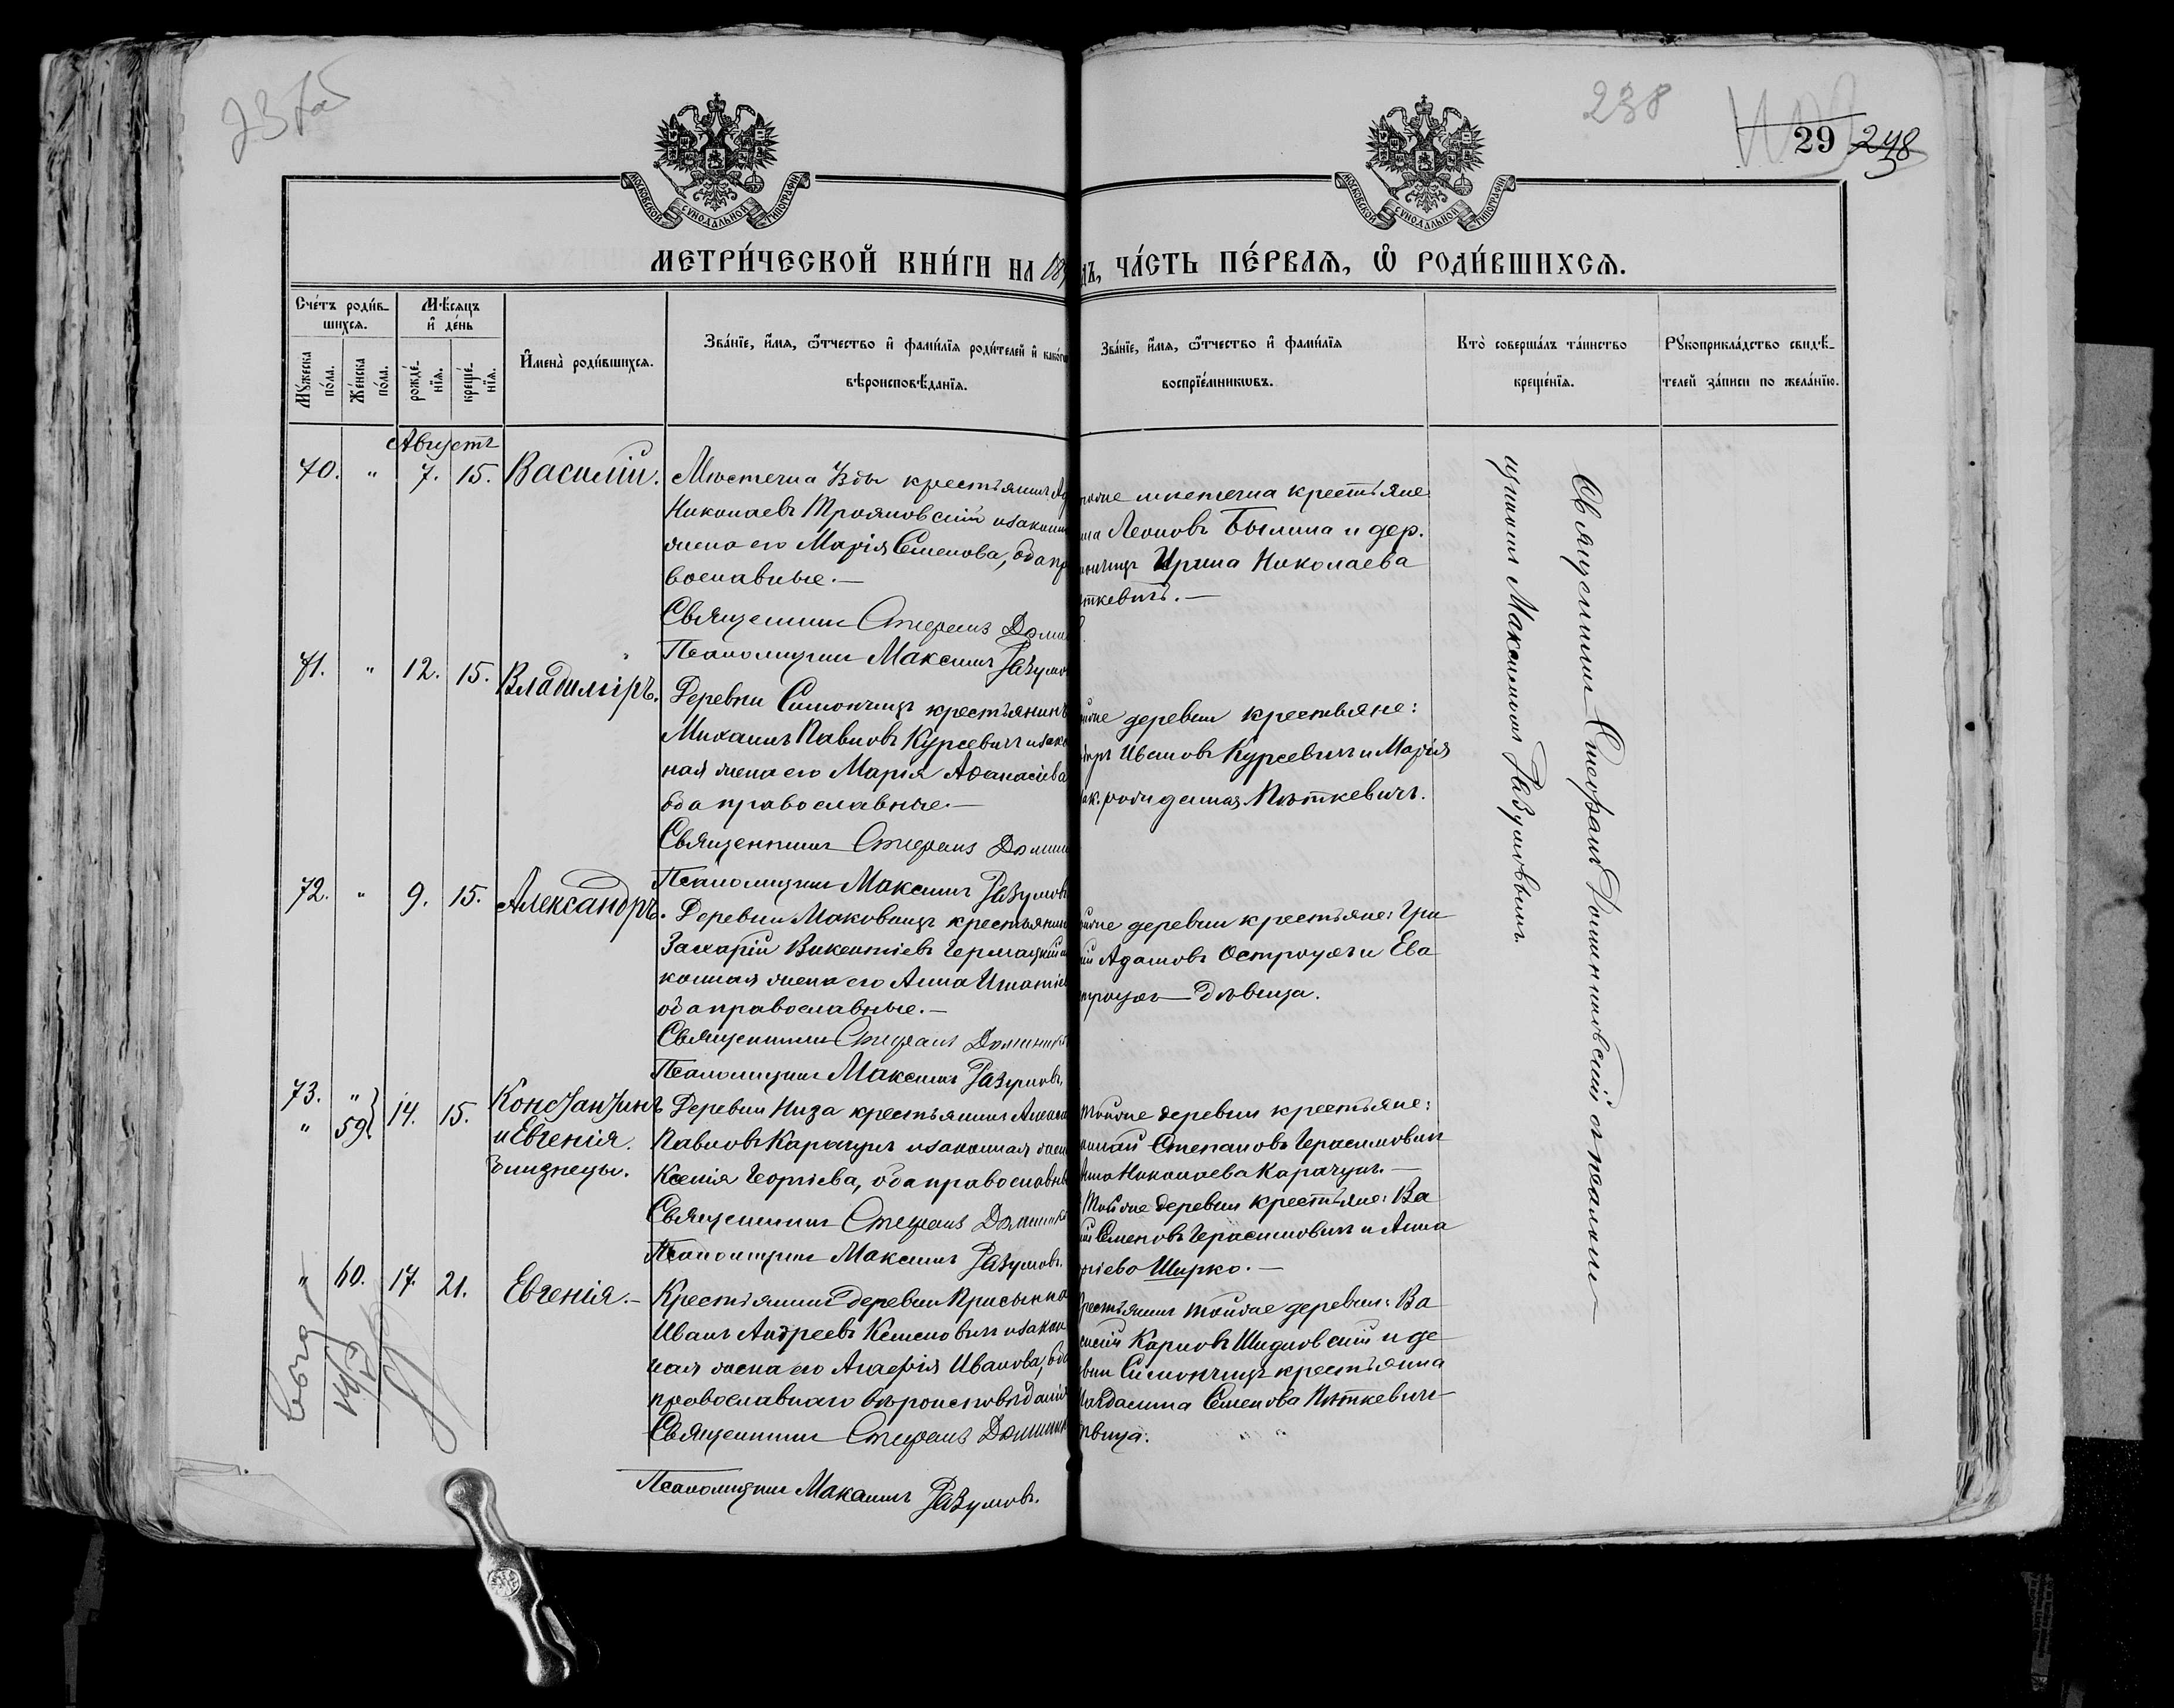 238
29 248
МОСКОВСКОЙ СѴНОДАЛЬНОЙ ТИПОГРАФІИ
МОСКОВСКОЙ СѴНОДАЛЬНОЙ ТИПОГРАФІИ
МЕТРИ́ЧЕСКОЙ КНИ́ГИ НА 189
ДЪ, ЧА́СТЬ ПЕ́РВАЯ, Ѡ҆ РОДИ́ВШИХСЯ.
Сче́тъ роди́в-
шихся.
Мꙋ́жеска
по́ла.
Же́нска
по́ла.
Мѣ́сяцъ
и҆ де́нь
рожде́-
нїя.
креще́-
нїя.
И҆мена̀ роди́вшихся.
Зва́нїе, и҆́мя, ѻ҆́тчество и҆ фами́лїя роди́телей и҆ како́гѡ
вѣроисповѣ́данїя.
Зва́нїе, и҆́мя, ѻ҆́тчество и҆ фами́лїя
воспрїе́мникѡвъ.
Кто̀ соверша́лъ та́инство
креще́нїя.
Рꙋкоприкла́дство свидѣ́-
телей за́писи по жела́нїю.
Августъ
70. " 7. 15. Василій.
Мѣстечка Узды крестьянинъ
Николаевъ Трояновскій и закон
жена его Марія Семенова, оба пр
вославные.—
Священникъ Стефанъ Домин
Псаломщикъ Максимъ Разумов
мѣстечка крестьяне
Леоновъ Былина и дер.
Ирина Николаева
ткевичъ.—
71. " 12. 15. Владиміръ.
Деревни Симончицъ крестьянинъ
Михаилъ Павловъ Курсевичъ и зако
ная жена его Марія Аѳанасіева
оба православные.—
Священникъ Стефанъ Домин
Псаломщикъ Максимъ Разумовъ
деревни крестьяне:
Ивановъ Курсевичъ и Марія
Пѣткевичъ.
72. " 9. 15. Александръ.
Деревни Маковищъ крестьянинъ
Захарій Викентіевъ
конная жена его Анна Игнатіев
оба православные.—
Священникъ Стефанъ Доминик
Псаломщикъ Максимъ Разумовъ
деревни крестьяне: Гри
Адамовъ Остроухъ и Ева
троухъ—дѣвица.
73. "
" 59 14. 15. Константинъ
и Евгенія.
близнецы.
Деревни Низа крестьянинъ
Павловъ Карачунъ и законная жена
Ксенія Георгіева, оба православны
Священникъ Стефанъ Доминик
Псаломщикъ Максимъ Разумовъ.
Тойже деревни крестьяне:
Степановъ Герасимовичъ
Николаева Карачунъ.—
Тойже деревни крестьяне: Ва
Семеновъ Герасимовичъ и Анна
гіева Ширко.—
" 60. 17. 21. Евгенія.—
Крестьянинъ деревни Присынка
Иванъ Андреевъ Кеменовичъ и закон
ная жена его Агафія Иванова, оба
православнаго вѣроисповѣданія
Священникъ Стефанъ Доминик
Псаломщикъ Максимъ Разумовъ.
рестьянинъ тойже деревни: Ва
силій Карповъ Шидловскій и де
вни Симончицъ крестьянка
Магдалина Семенова Пѣткевичъ
ѣвица.
Священникъ Стефанъ Доминиковскій съ псаломщ
щикомъ Максимомъ Разумовымъ.